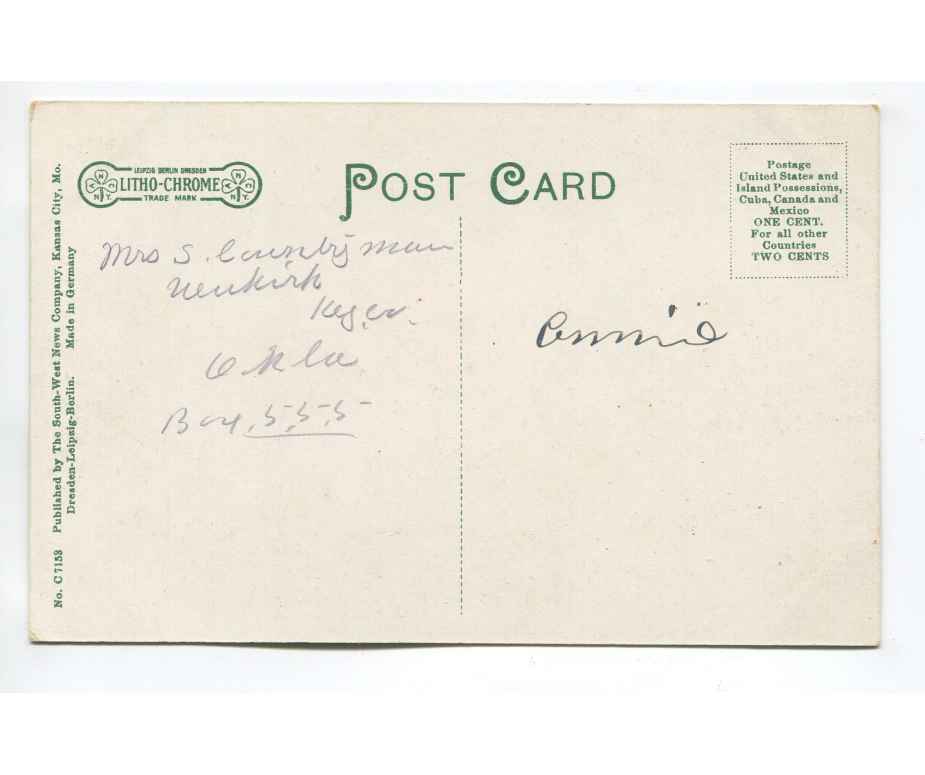 LEIPZIG BERLIN DRESDEN
LITHO-CHROME
TRADE MARK
POST CARD
Postage
United States and
Island Possessions,
Cuba, Canada and
Mexico
ONE CENT.
For all other
Countries
TWO CENTS
Mrs S. Countryman
Newkirk
Okla
Box, 5,5,5
Annie
No. C 7153 Published by The South-West News Company, Kansas City, Mo.
Dresden-Leipzig-Berlin. Made in Germany